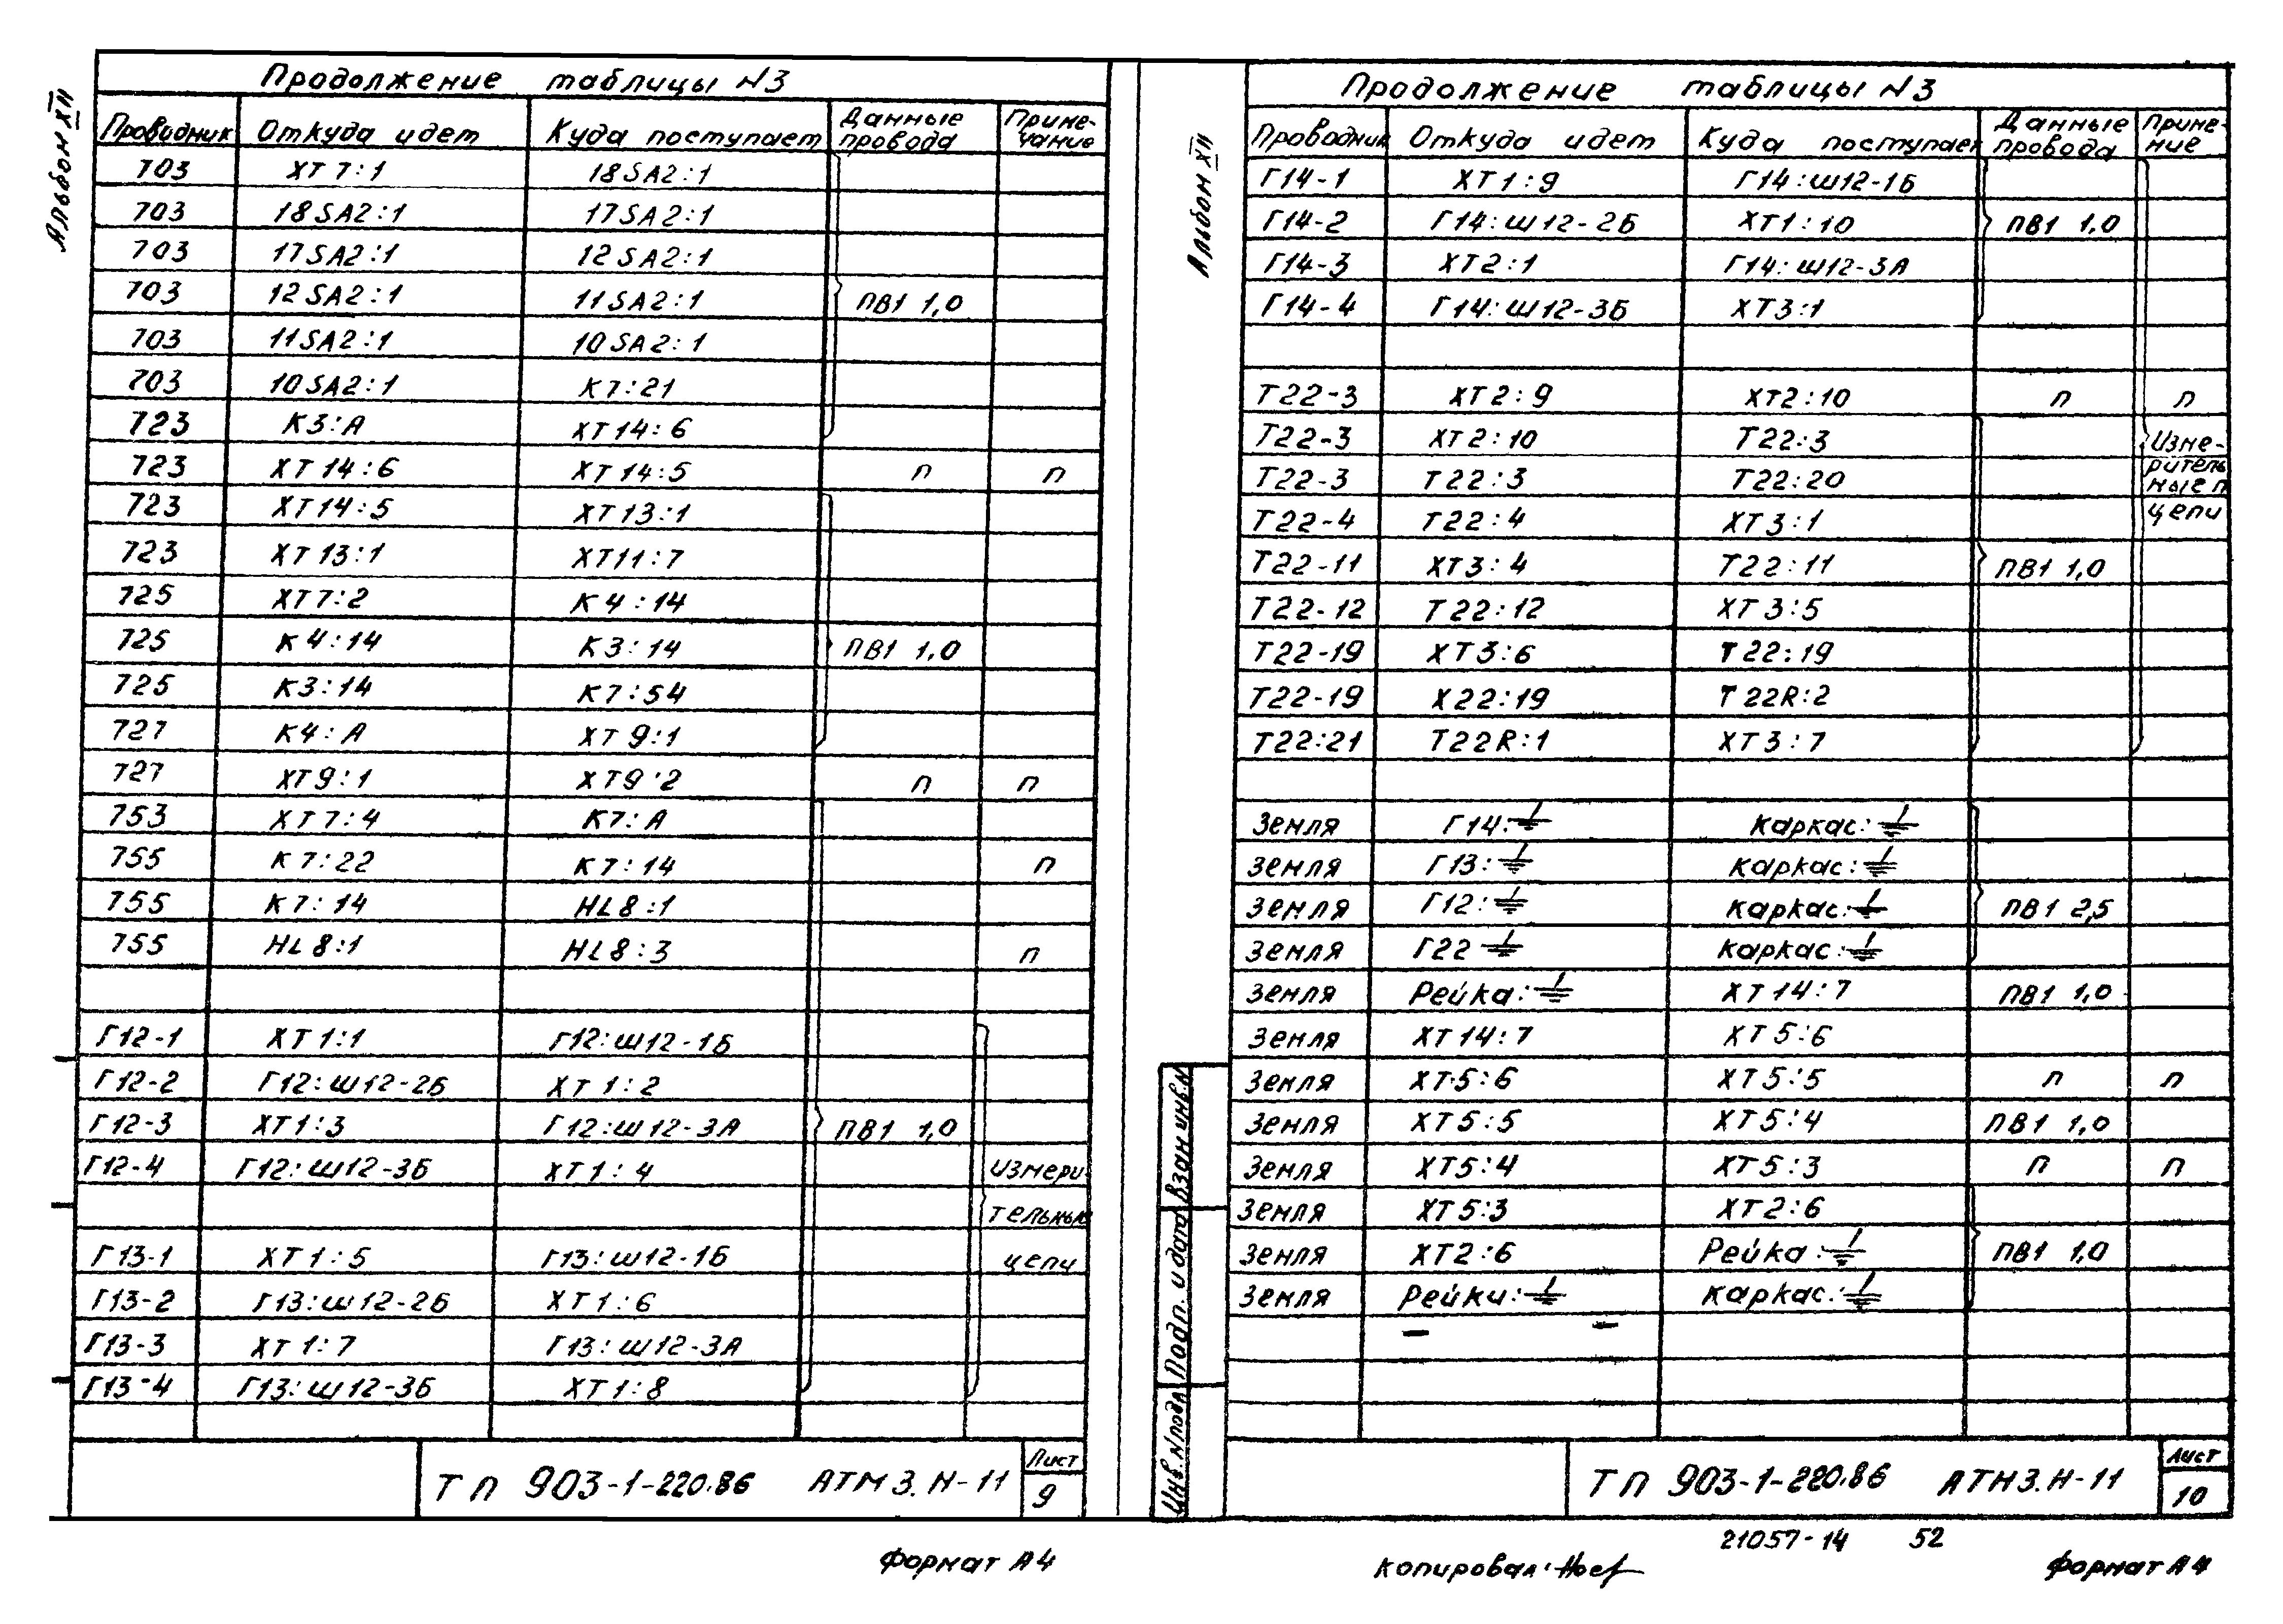 Альбом XII
Продолжение таблицы N3
Проводник Откуда идет Куда поступает Данные провода Приме-чание
703 ХТ7:1 18SA2:1
703 18SA2:1 17SA2:1
703 17SA2:1 12SA2:1
703 12SA2:1 11SA2:1 ПВ1 1,0
703 11SA2:1 10SA2:1
703 10SA2:1 К7:21
723 К3:А ХТ14:6
723 ХТ14:6 ХТ14:5 п п
723 ХТ14:5 ХТ13:1
723 ХТ13:1 ХТ11:7
725 ХТ7:2 К4:14
725 К4:14 К3:14 ПВ1 1,0
725 К3:14 К7:54
727 К4:А ХТ9:1
727 ХТ9:1 ХТ9:2 п п
753 ХТ7:4 К7:А
755 К7:22 К7:14 п
755 К7:14 HL8:1
755 HL8:1 HL8:3 п
Г12-1 ХТ1:1 Г12:Ш12-1Б
Г12-2 Г12:Ш12-2Б ХТ1:2
Г12-3 ХТ1:3 Г12:Ш12-3А ПВ1 1,0
Г12-4 Г12:Ш12-3Б ХТ1:4 Измери-
тельные
Г13-1 ХТ1:5 Г13:Ш12-1Б цепи
Г13-2 Г13:Ш12-2Б ХТ1:6
Г13-3 ХТ1:7 Г13:Ш12-3А
Г13-4 Г13:Ш12-3Б ХТ1:8
ТП 903-1-220.86 АТМ3.Н-11 Лист 9
Формат А4
Альбом XII
Продолжение таблицы N3
Проводник Откуда идет Куда поступает Данные провода Приме-ние
Г14-1 ХТ1:9 Г14:Ш12-1Б
Г14-2 Г14:Ш12-2Б ХТ1:10 ПВ1 1,0
Г14-3 ХТ2:1 Г14:Ш12-3А
Г14-4 Г14:Ш12-3Б ХТ3:1
Т22-3 ХТ2:9 ХТ2:10 п п
Т22-3 ХТ2:10 Т22:3 Изме-
Т22-3 Т22:3 Т22:20 ритель ные п
Т22-4 Т22:4 ХТ3:1 цепи
Т22-11 ХТ3:4 Т22:11 ПВ1 1,0
Т22-12 Т22:12 ХТ3:5
Т22-19 ХТ3:6 Т22:19
Т22-19 Х22:19 Т22R:2
Т22:21 Т22R:1 ХТ3:7
Земля Г14:⏚ Каркас:⏚
Земля Г13:⏚ Каркас:⏚
Земля Г12:⏚ Каркас:⏚ ПВ1 2,5
Земля Г22 ⏚ Каркас:⏚
Земля Рейка:⏚ ХТ14:7 ПВ1 1,0
Земля ХТ14:7 ХТ5:6
Земля ХТ5:6 ХТ5:5 п п
Земля ХТ5:5 ХТ5:4 ПВ1 1,0
Земля ХТ5:4 ХТ5:3 п п
Земля ХТ5:3 ХТ2:6
Земля ХТ2:6 Рейка:⏚ ПВ1 1,0
Земля Рейки:⏚ Каркас:⏚
Взам инв.N
Подп. и дата
Инв.N подл
ТП 903-1-220.86 АТМ3.Н-11 Лист 10
21057-14 52
Копировал:
Формат А4